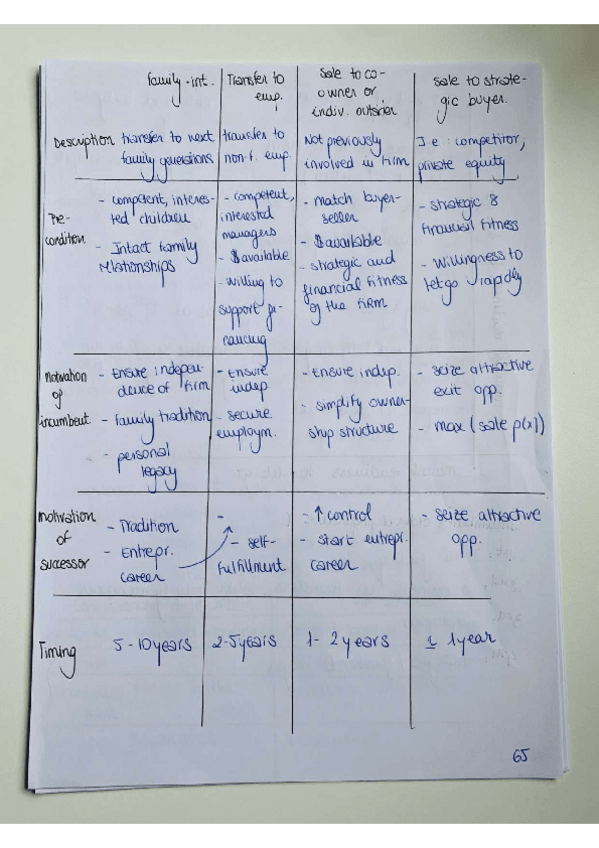 family-int.
Transfer to
emp.
Sale to co-
owner or
indiv. outsider
Sale to strate-
gic buyer.
Description
transfer to next
family generations
transfer to
non-f. emp.
Not previously
involved in firm
I.e: competitor,
private equity
Pre-
condition
- competent, interes-
ted children
- Intact family
relationships
- competent,
interested
managers
- $ available
- willing to
support fi-
nancing
- match buyer-
seller
- $ available
- strategic and
financial fitness
of the firm
- strategic &
financial fitness
- Willingness to
let go rapidly
Motivation
of
incumbent
- Ensure indepen-
dence of firm
- family tradition
- personal
legacy
- Ensure
indep.
- secure
employm.
- Ensure indep.
- simplify owner-
ship structure
- seize attractive
exit opp.
- max (sale p(x))
Motivation
of
successor
- Tradition
- Entrepr.
career
-
- self-
fulfillment
- ↑ control
- start entrepr.
career
- seize attractive
opp.
Timing
5 - 10 years
2-5 years
1- 2 years
1 year
65